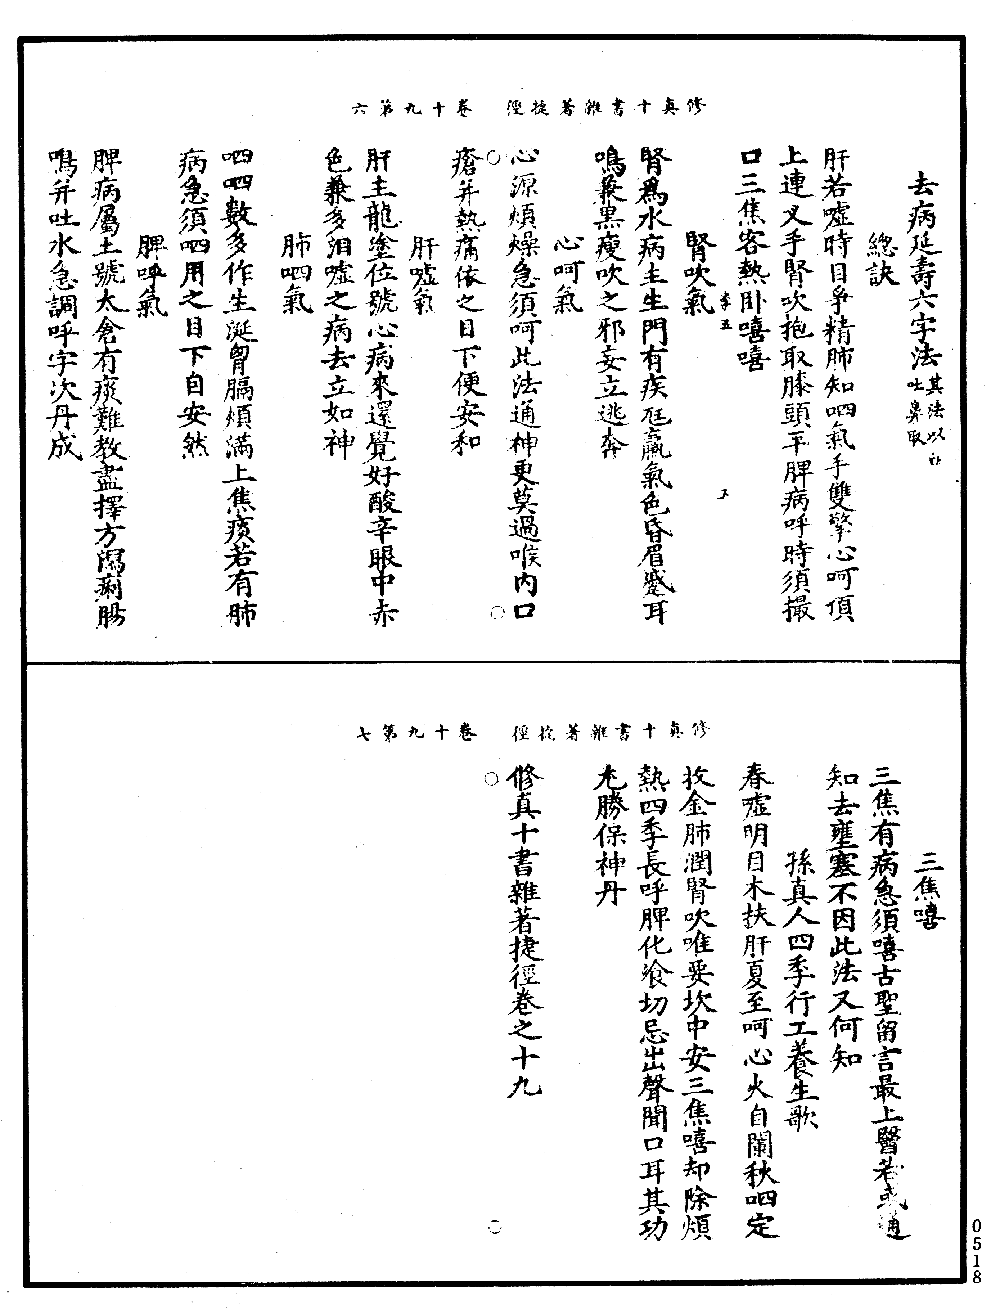 修真十書雜著捷徑　卷十九第六
去病延壽六字法其法以
吐鼻取
總訣
肝若噓時目爭精肺知呬氣手雙擎心呵頂
上連叉手腎吹抱取膝頭平脾病呼時須撮
口三焦客熱卧嘻嘻
腎吹氣
腎為水病主生門有疾尫羸氣色昏眉蹙耳
鳴兼黑瘦吹之邪妄立逃奔
心呵氣
心源煩燥急須呵此法通神更莫過喉內口
瘡并熱痛依之目下便安和
肝噓氣
肝主龍塗位號心病來還覺好酸辛眼中赤
色兼多淚噓之病去立如神
肺呬氣
呬呬數多作生涎胷膈煩滿上焦痰若有肺
病急須呬用之目下自安然
脾呼氣
脾病屬土號太倉有痰難教盡擇方瀉痢腸
鳴并吐水急調呼字次丹成
修真十書雜著捷徑　卷十九第七
三焦嘻
三焦有病急須嘻古聖留言最上醫若或通
知去壅塞不因此法又何知
孫真人四季行工養生歌
春噓明目木扶肝夏至呵心火自闌秋呬定
收金肺潤腎吹唯要坎中安三焦嘻却除煩
熱四季長呼脾化飡切忌出聲聞口耳其功
尤勝保神丹
修真十書雜著捷徑卷之十九
0518